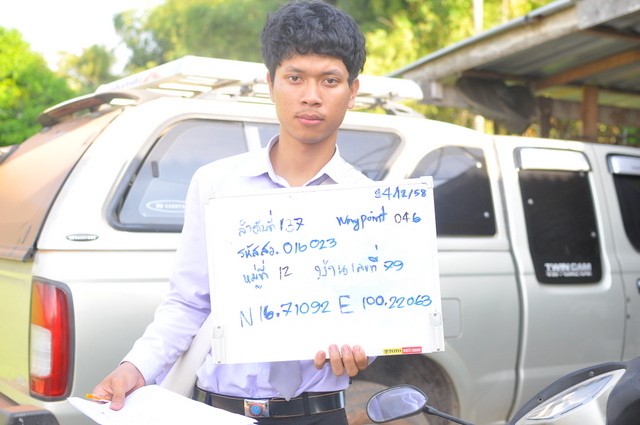 24/12/58
ลำดับที่ 137 waypoint 046
รหัสสว. 016023
หมู่ที่ 12 บ้านเลขที่ 79
N 16.71092 E 100.22063
TOTO
TWINCAM